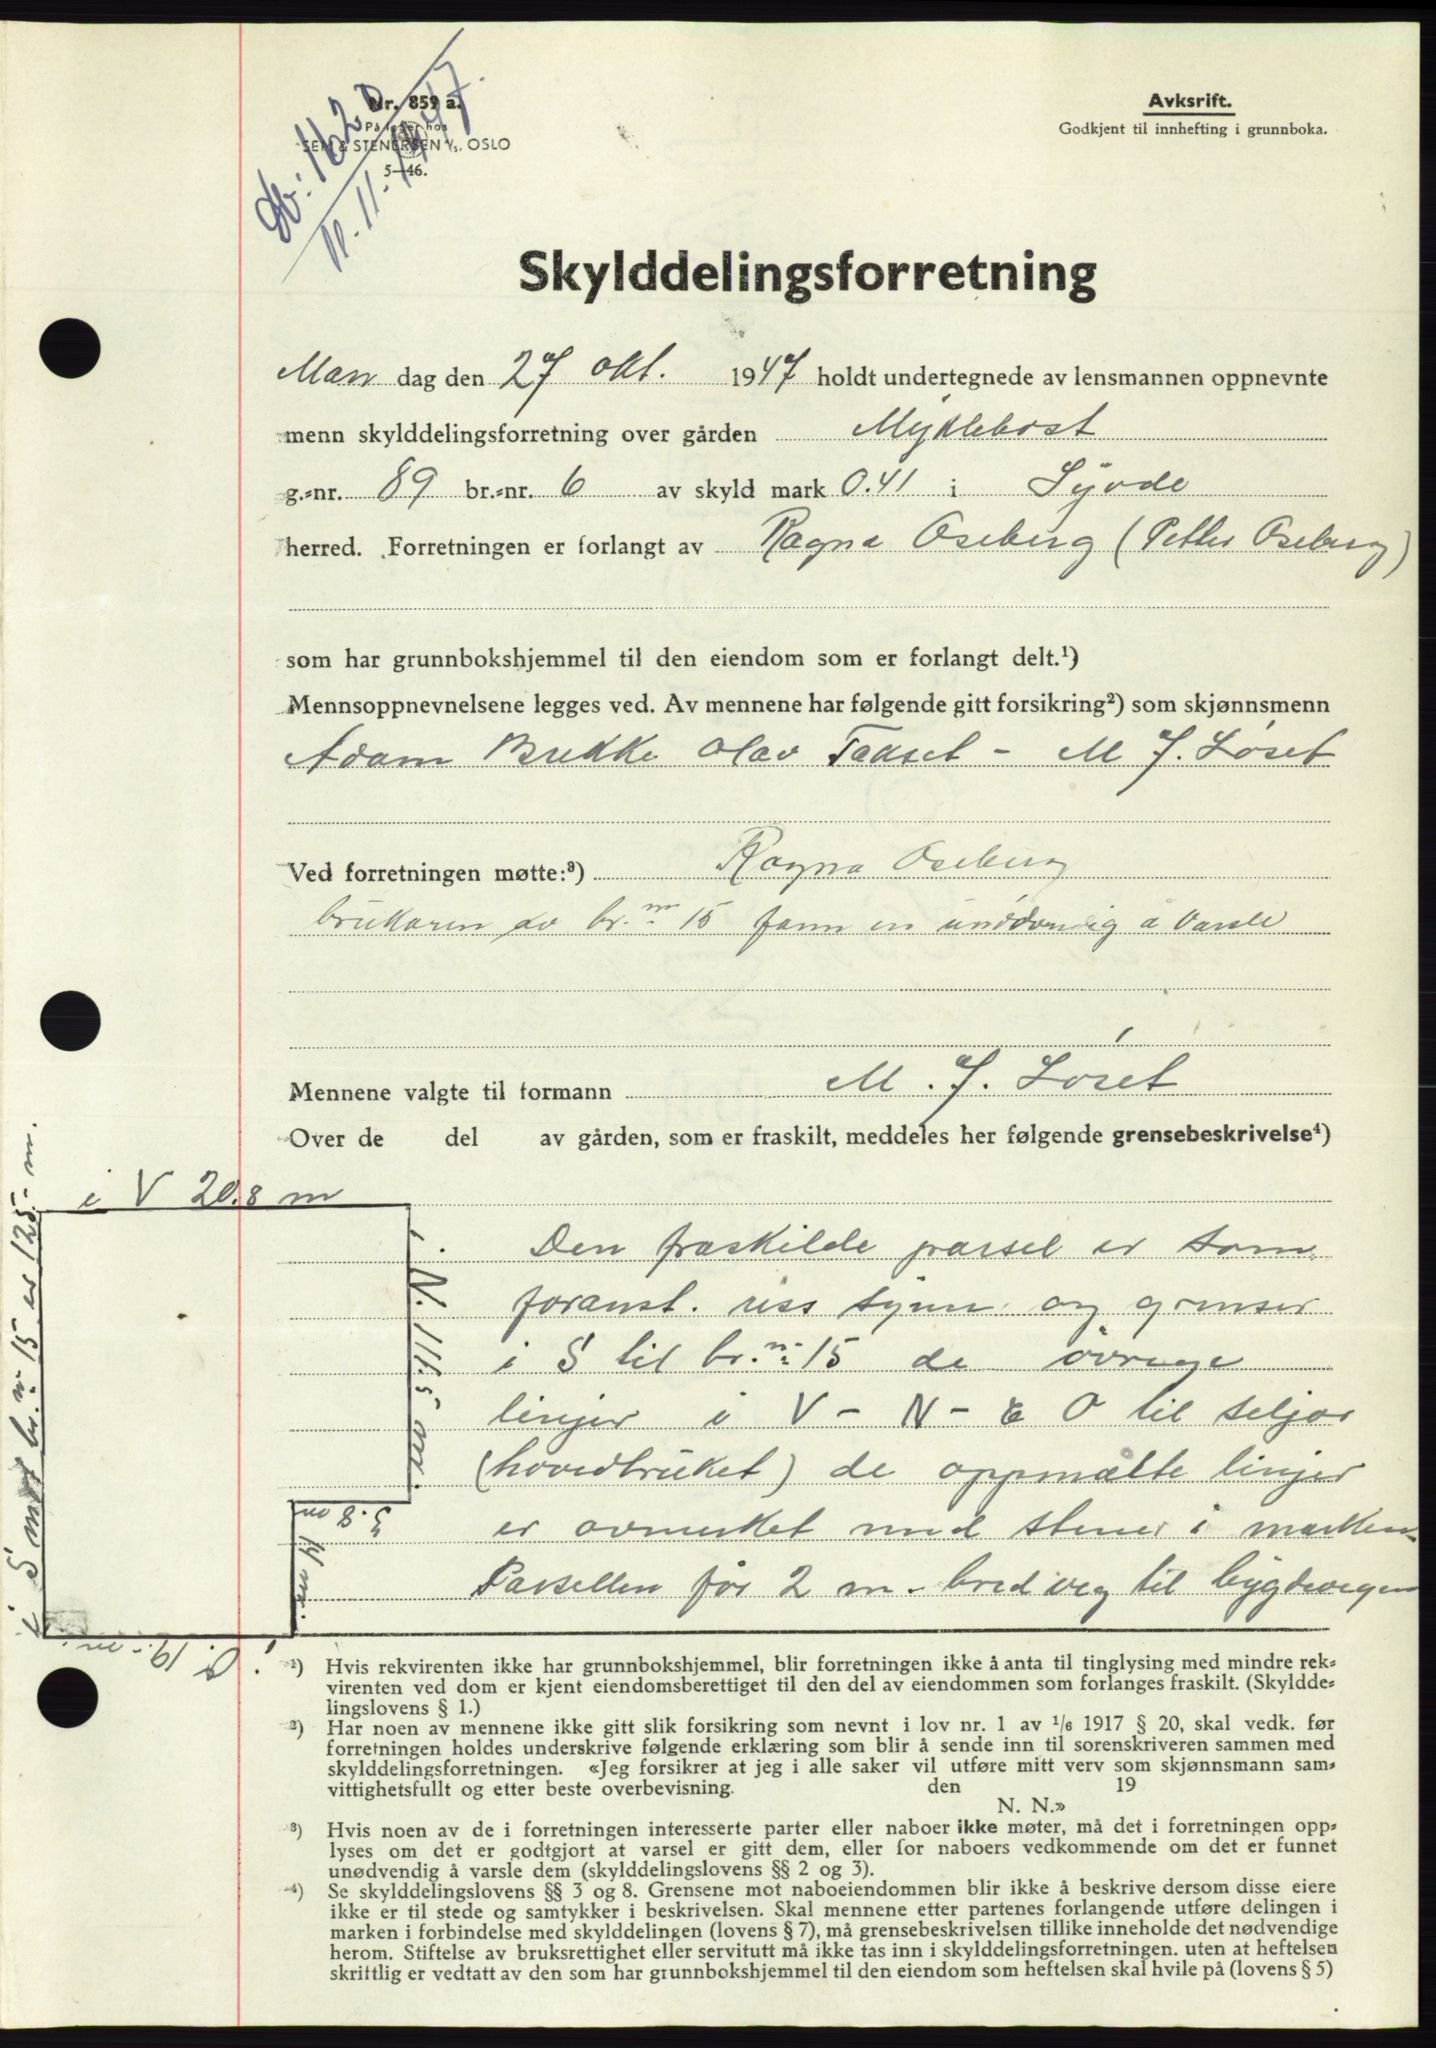 Db: 1620
11.11.1947.
Nr. 859 a.
På lager hos
SEM & STENERSEN A/S, OSLO
5—46.
Avksrift.
Godkjent til innhefting i grunnboka.
Skylddelingsforretning
Man dag den 27 okt. 1947 holdt undertegnede av lensmannen oppnevnte
menn skylddelingsforretning over gården Myklebost
g.=nr. 89 br.=nr. 6 av skyld mark 0.41 i Syvde
herred. Forretningen er forlangt av Ragna Oseberg (Petter Oseberg)
som har grunnbokshjemmel til den eiendom som er forlangt delt.¹)
Mennsoppnevnelsene legges ved. Av mennene har følgende gitt forsikring²) som skjønnsmenn
Adam Brekke Olav Takset – M J. Løset
Ved forretningen møtte:³) Ragna Oseberg
brukaren av br. nr 15 fann en unødvendig å varsle
Mennene valgte til formann M. J. Løset
Over de del av gården, som er fraskilt, meddeles her følgende grensebeskrivelse⁴)
i V 20.8 m
i S mot br. nr 15 er 125.- m.
i N. 111.5 m.
3.8 m
14 m.
i Ø. 19.- m.
Den fraskilde parsel er som
foranst. riss synar og grenser
i S til br. nr 15 de øvrege
linjer i V – N – & O til seljar
(hovedbruket) de oppmålte linjer
er avmerket med stener i marken.
Parsellen får 2 m. bred veg til bygdevegen
¹) Hvis rekvirenten ikke har grunnbokshjemmel, blir forretningen ikke å anta til tinglysing med mindre rek=
virenten ved dom er kjent eiendomsberettiget til den del av eiendommen som forlanges fraskilt. (Skyldde=
lingslovens § 1.)
²) Har noen av mennene ikke gitt slik forsikring som nevnt i lov nr. 1 av 1/6 1917 § 20, skal vedk. før
forretningen holdes underskrive følgende erklæring som blir å sende inn til sorenskriveren sammen med
skylddelingsforretningen. «Jeg forsikrer at jeg i alle saker vil utføre mitt verv som skjønnsmann sam=
vittighetsfullt og etter beste overbevisning. den 19
N. N.»
³) Hvis noen av de i forretningen interesserte parter eller naboer ikke møter, må det i forretningen opp=
lyses om det er godtgjort at varsel er gitt dem, eller for naboers vedkommende om det er funnet
unødvendig å varsle dem (skylddelingslovens §§ 2 og 3).
⁴) Se skylddelingslovens §§ 3 og 8. Grensene mot naboeiendommen blir ikke å beskrive dersom disse eiere
ikke er til stede og samtykker i beskrivelsen. Skal mennene etter partenes forlangende utføre delingen i
marken i forbindelse med skylddelingen (lovens § 7), må grensebeskrivelsen tillike inneholde det nødvendige
herom. Stiftelse av bruksrettighet eller servitutt må ikke tas inn i skylddelingsforretningen. uten at heftelsen
skriftlig er vedtatt av den som har grunnbokshjemmel til den eiendom som heftelsen skal hvile på (lovens § 5)